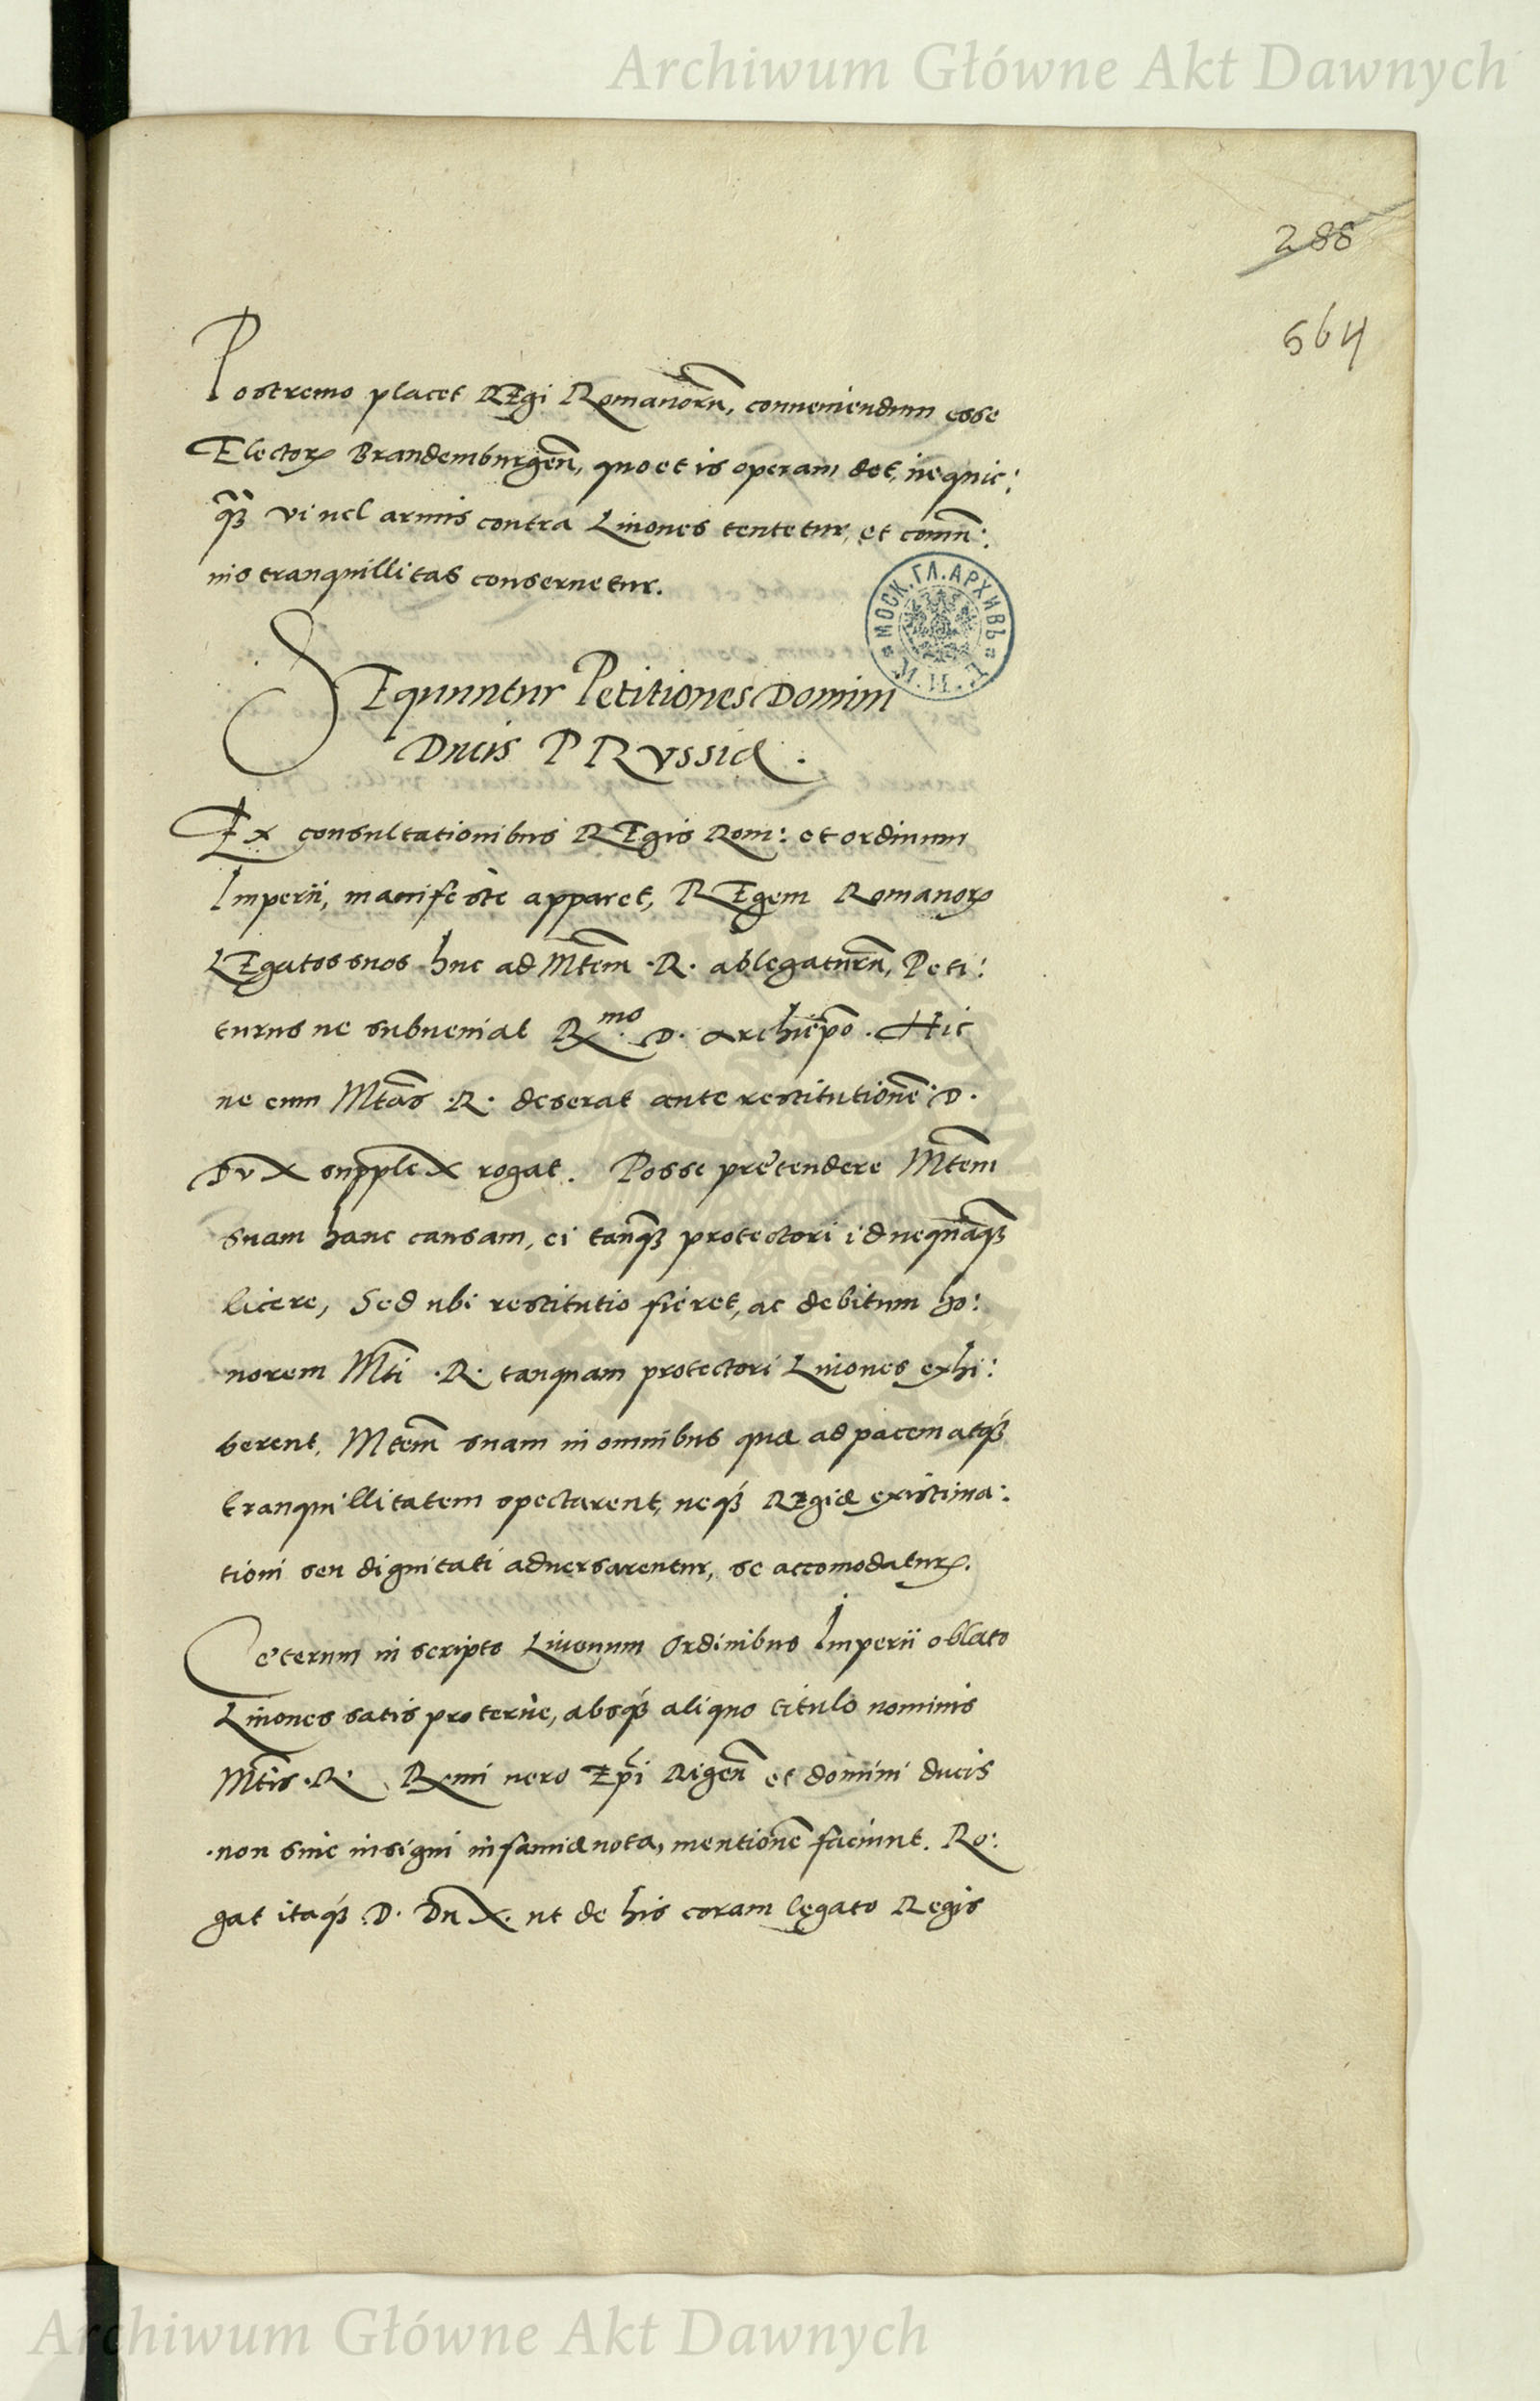 Archiwum Główne Akt Dawnych
288
564
Postremo placet REgi Romanorũ, conueniendum esse
Electorꝝ Brandemburgeñ, quo et is operam det, ne quic:
q̃ꝫ vi uel armis contra Liuones tentetur, et comũ:
nis tranquillitas conseruetur.
МОСК.ГЛ.АРХИВЪ
М.И.Д.
SEquuntur Petitiones Domini
Ducis PRVssiæ.
Ex consultationibus REgis Rom: et ordinum
Imperii, manifestè apparet, REgem Romanorꝝ
LEgatos suos huc ad Mtem̃ .R. ablegaturũ, Peti:
turus ne subueniat R.mo D. Archiepõ. Hic
ne eum Mtãs .R. deserat ante restitutionẽ D.
Dux supplex rogat. Posse prętendere Mtem̃
suam hanc causam, ei tanq̃ꝫ protectori id nequaq̃ꝫ
licere, Sed ubi restitutio fieret, ac debitum ho:
norem Mti .R. tanquam protectori Liuones exhi:
berent, Mtem̃ suam in omnibus quæ ad pacem atqꝫ
tranquillitatem spectarent, neqꝫ REgiæ existima:
tioni seu dignitati aduersarentur, se accomodaturꝝ.
Cęterum in scripto Liuonum Ordinibus Imperii oblato
Liuones satis proteruè, absqꝫ aliquo titulo nominis
Mtis .R. Rmi uero Epĩ Rigeñ et domini ducis
non sine insigni infamiæ nota, mentionẽ faciunt. Ro:
gat itaqꝫ D. Dux. ut de his coram legato Regis
Archiwum Główne Akt Dawnych